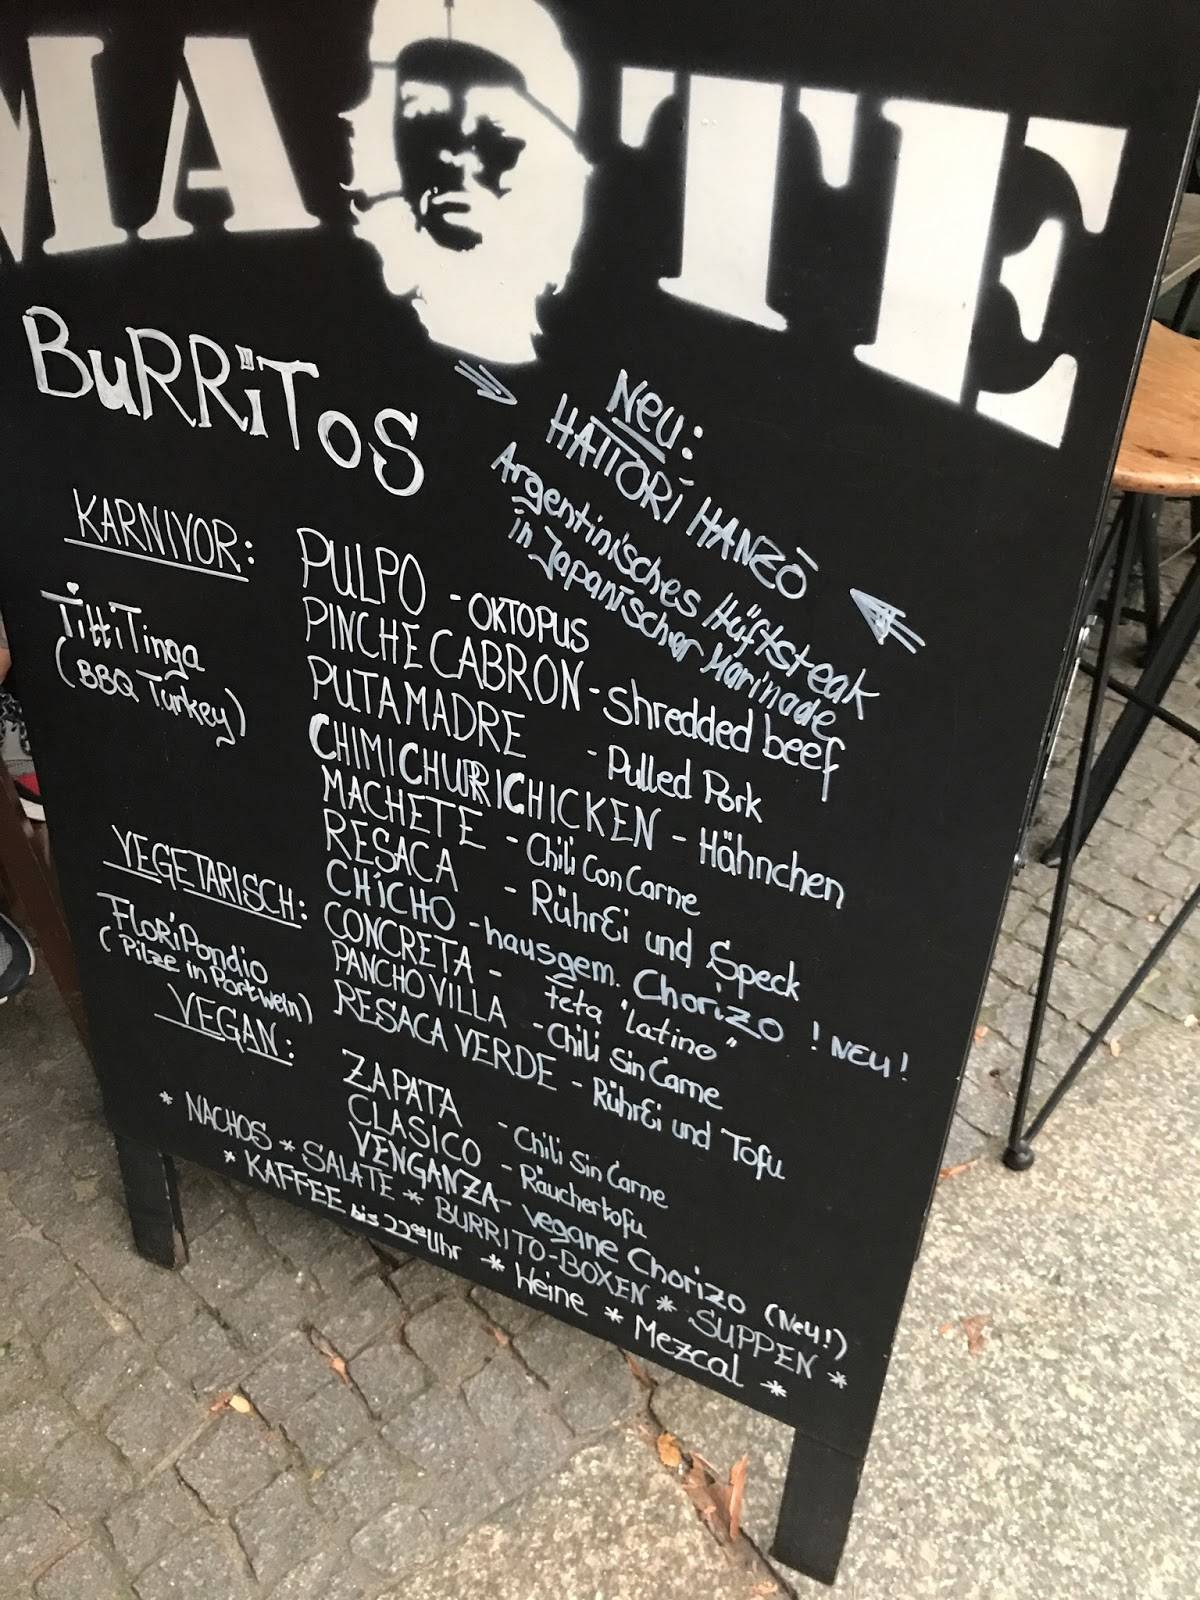 MA TE
BuRRiTos
Neu:
HATTORI HANZŌ
Argentinisches Hüftsteak
in Japanischer Marinade
KARNIVOR:
PULPO - OKTOPUS
PINCHE CABRON - Shredded beef
TittiTinga
(BBQ Turkey)
PUTAMADRE - Pulled Pork
CHIMICHURRICHICKEN - Hähnchen
MACHETE - Chili Con Carne
RESACA - RührEi und Speck
CHICHO - hausgem. Chorizo ! NEU!
VEGETARISCH:
CONCRETA - feta "Latino"
FLORiPondio
(Pilze in Portwein)
PANCHO VILLA - Chili Sin Carne
RESACA VERDE - RührEi und Tofu
VEGAN:
ZAPATA - Chili Sin Carne
CLASICO - Räuchertofu
VENGANZA - vegane Chorizo (Neu!)
* NACHOS * SALATE * BURRITO-BOXEN * SUPPEN *
* KAFFEE bis 22⁰⁰ Uhr * Weine * Mezcal *